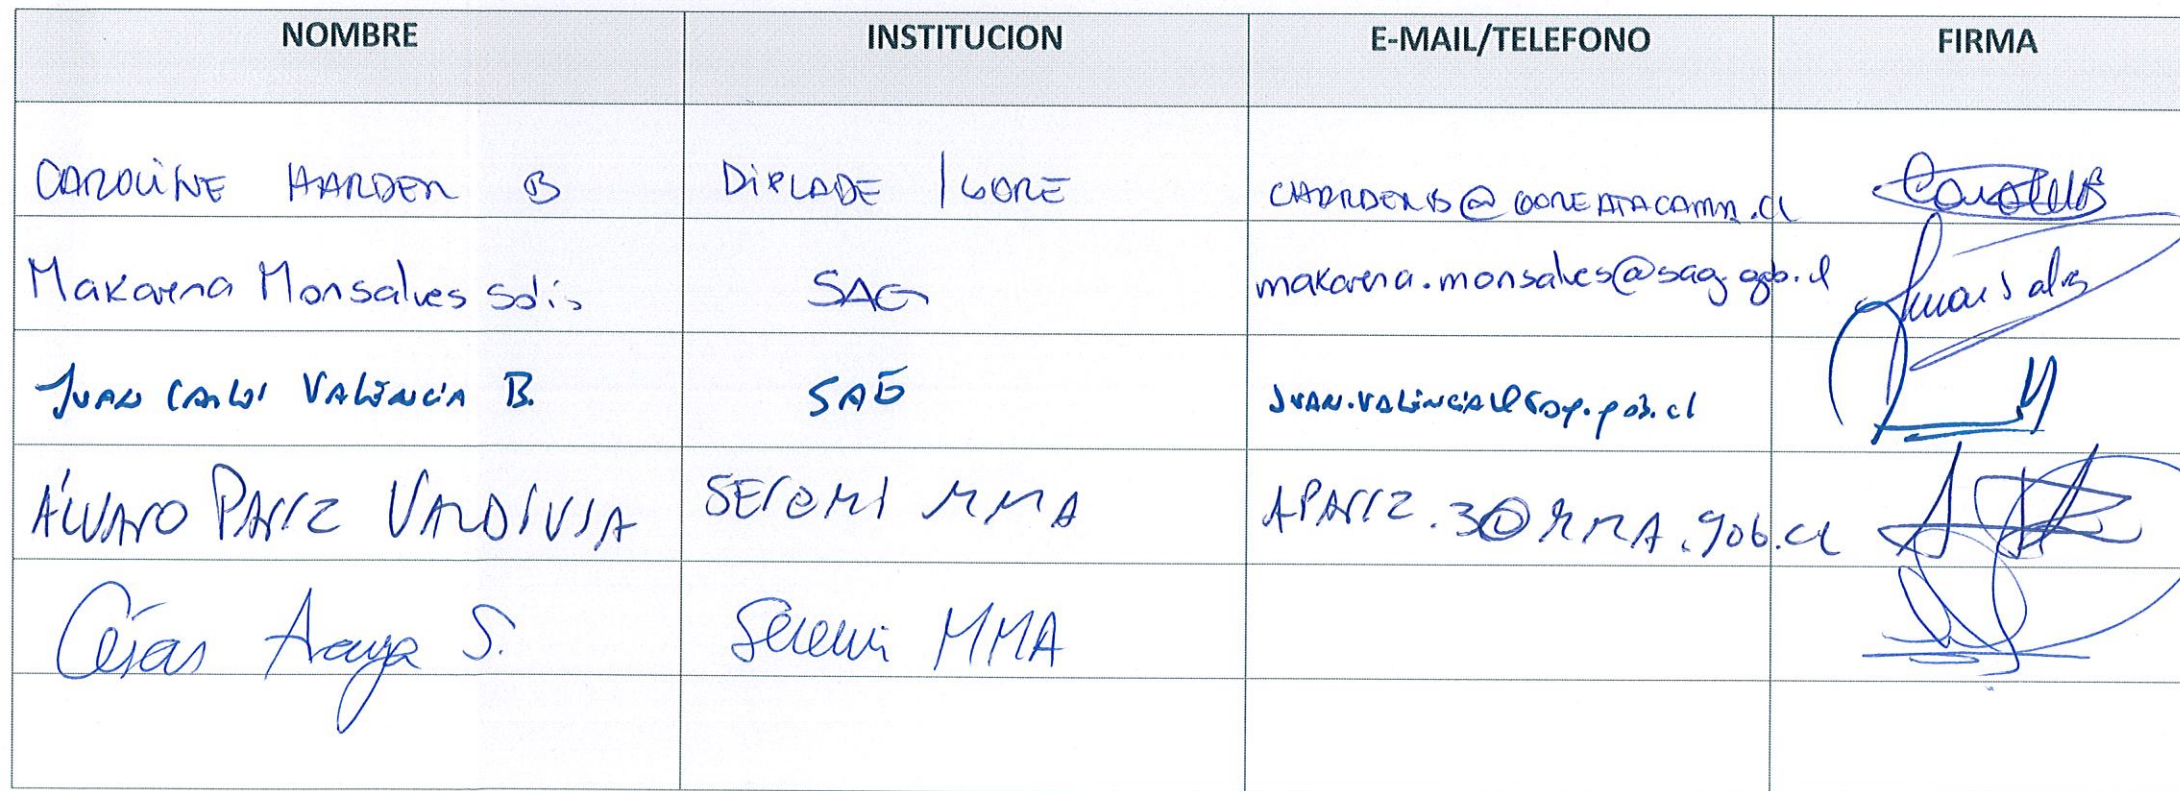 NOMBRE INSTITUCION E-MAIL/TELEFONO FIRMA
CAROLINE HARDER B DIPLADE / GORE CHARDERB@GOREATACAMA.CL
Makarena Monsalves Solis SAG makarena.monsalves@sag.gob.cl
JUAN CARLOS VALENCIA B. SAG JUAN.VALENCIA@sag.gob.cl
ÁLVARO PARRZ VALDIVIA SEREMI MMA APARRZ.3@MMA.gob.cl
César Araya S. Seremi MMA